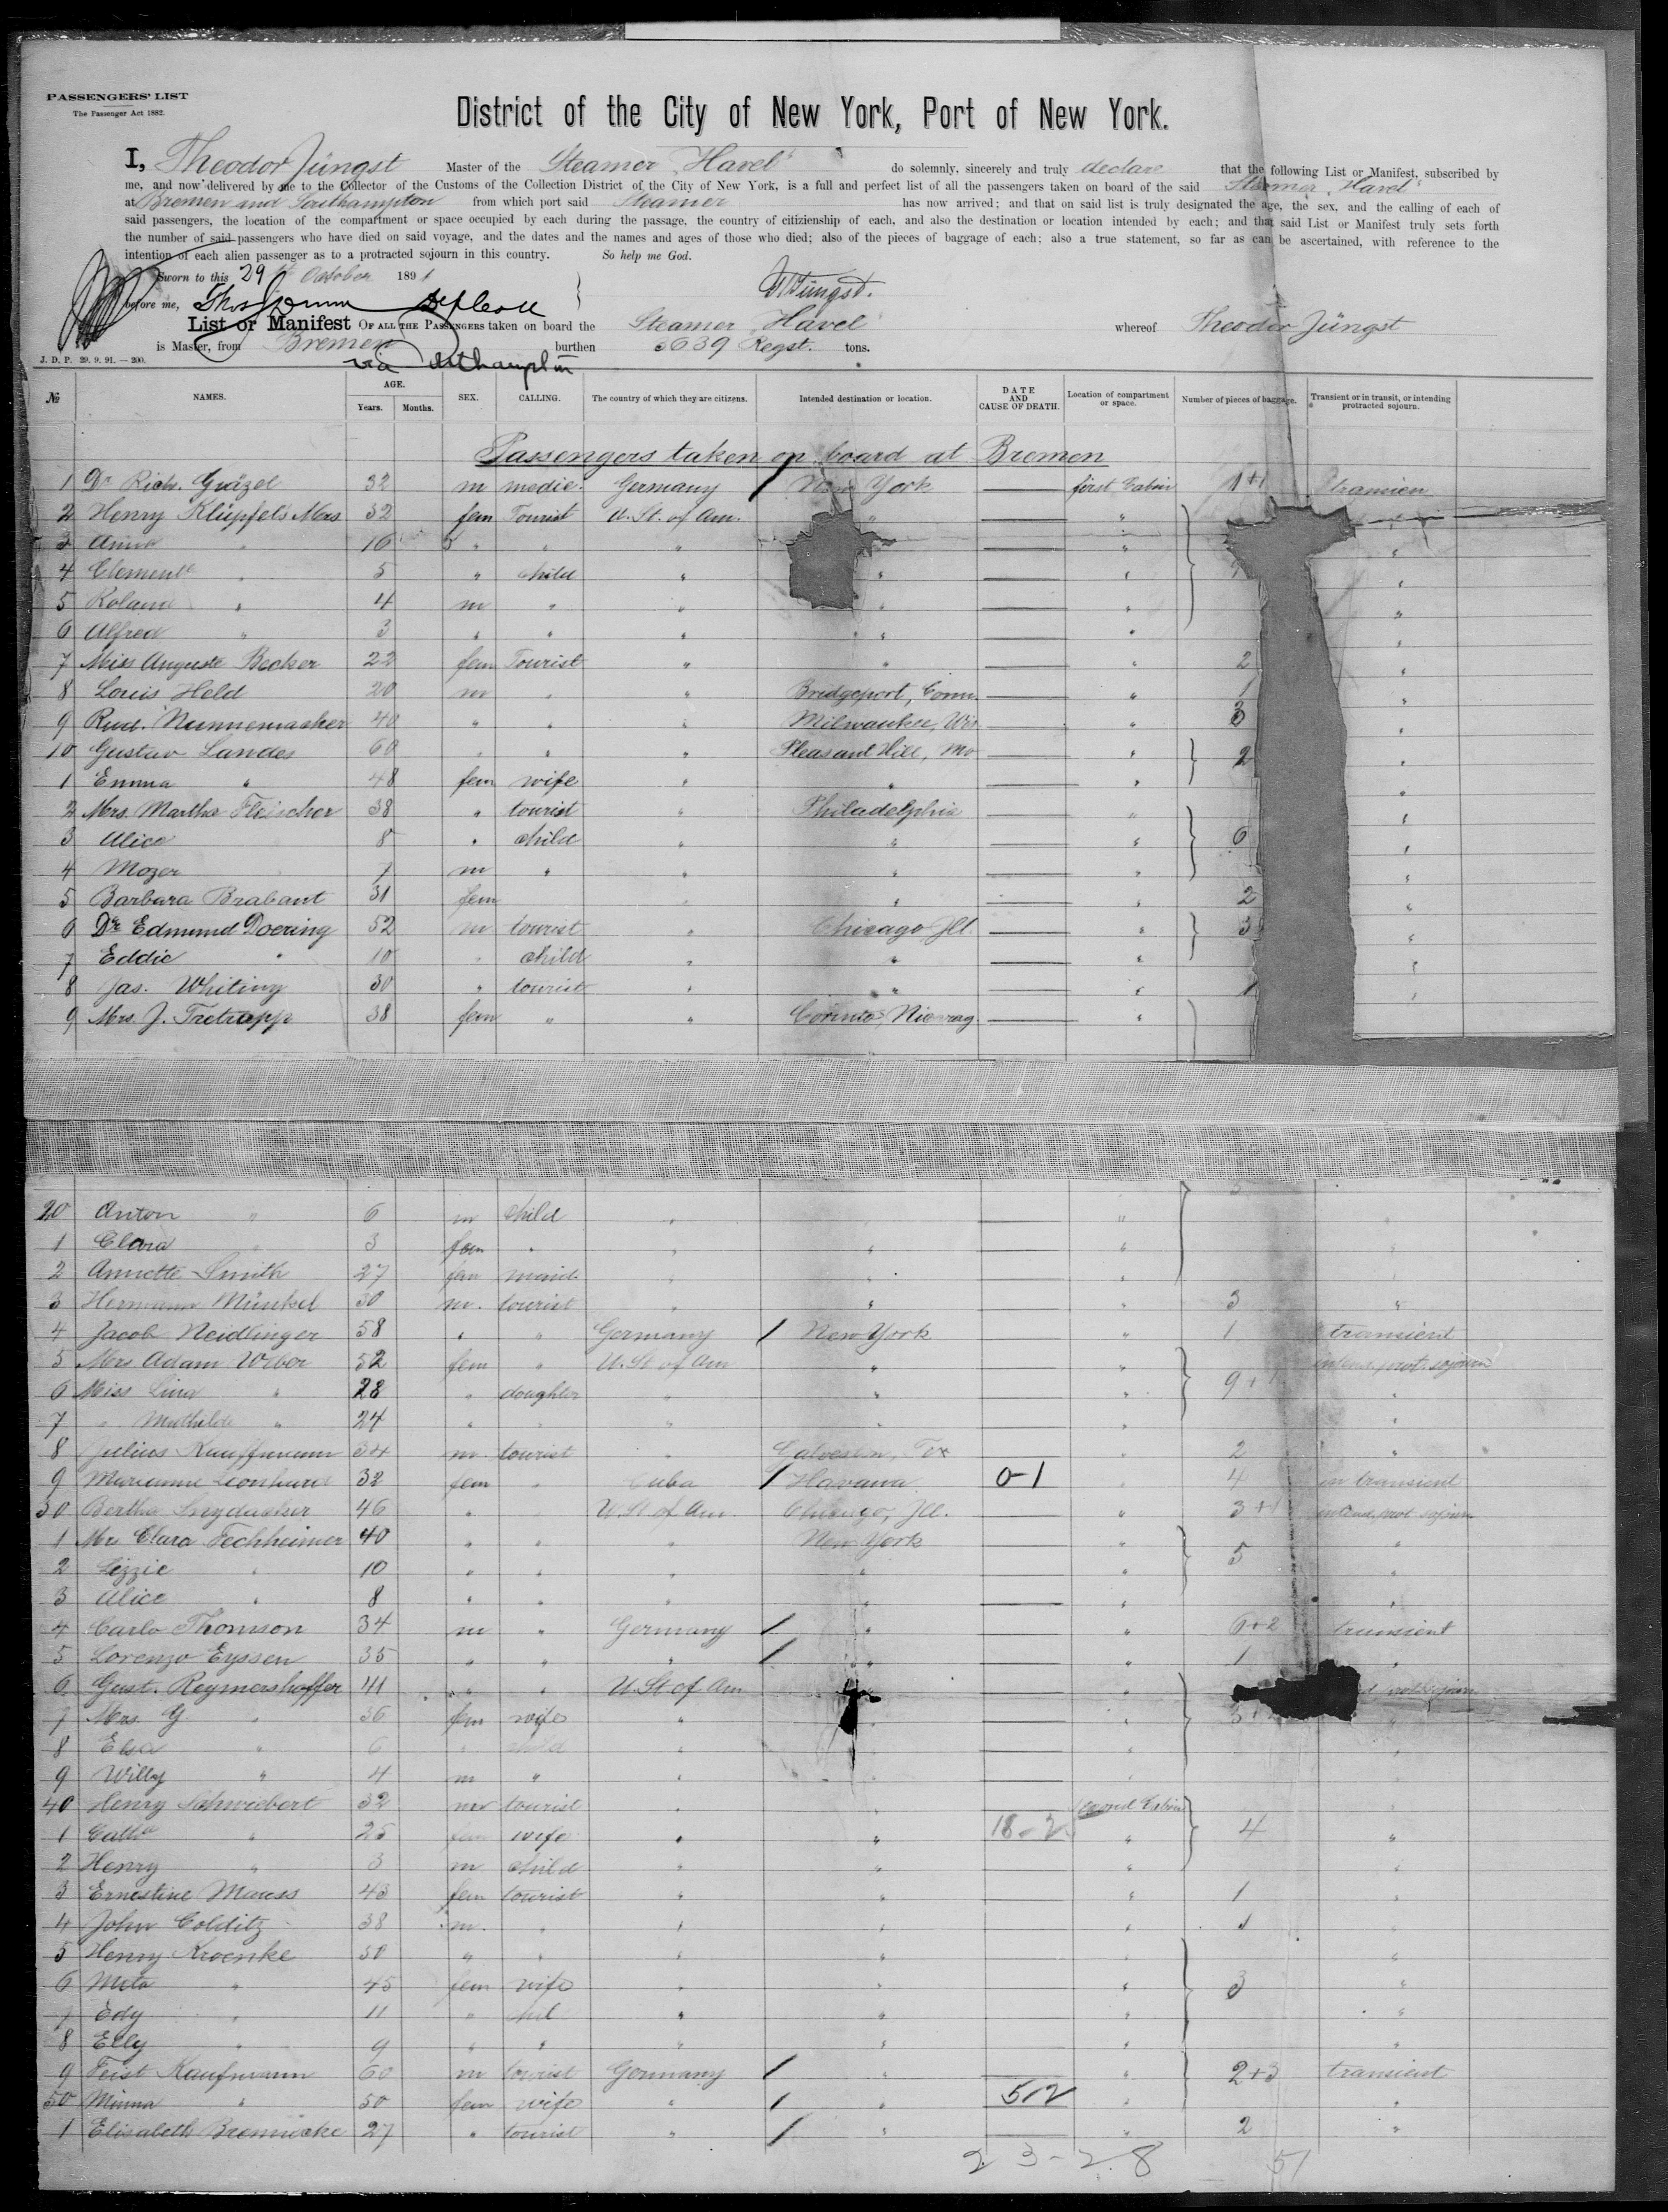 PASSENGERS' LIST
The Passenger Act 1882.
District of the City of New York, Port of New York.
I, Theodor Jüngst Master of the Steamer „Havel" do solemnly, sincerely and truly declare that the following List or Manifest, subscribed by
me, and now delivered by me to the Collector of the Customs of the Collection District of the City of New York, is a full and perfect list of all the passengers taken on board of the said Steamer „Havel"
at Bremen and Southampton from which port said Steamer has now arrived; and that on said list is truly designated the age, the sex, and the calling of each of
said passengers, the location of the compartment or space occupied by each during the passage, the country of citizienship of each, and also the destination or location intended by each; and that said List or Manifest truly sets forth
the number of said passengers who have died on said voyage, and the dates and the names and ages of those who died; also of the pieces of baggage of each; also a true statement, so far as can be ascertained, with reference to the
intention of each alien passenger as to a protracted sojourn in this country. So help me God.
Sworn to this 29 October 1891
before me, Th. Jüngst.
List or Manifest OF ALL THE PASSENGERS taken on board the Steamer Havel whereof Theodor Jüngst
is Master, from Bremen burthen 3639 Regst. tons.
J. D. P. 29. 9. 91. — 200. via Southampton
№ NAMES. AGE. Years. Months. SEX. CALLING. The country of which they are citizens. Intended destination or location. DATE AND CAUSE OF DEATH. Location of compartment or space. Number of pieces of baggage. Transient or in transit, or intending protracted sojourn.
Passengers taken on board at Bremen
1 Dr Rich. 32 m medic. Germany / New York — first Cabin 1+1 transien
2 Henry Klüpfels Mrs 32 fem Tourist U. St. of Am. " — "
3 Anna " 16 " " " — " "
4 " 5 " child " " — " "
5 " 4 m " " " — " "
6 Alfred " 3 " " " " — " "
7 Miss Auguste Becker 22 fem Tourist " " — " 2 "
8 Louis Held 20 m " " Bridgeport, Conn. — " 1 "
9 Rud. Nunnemacher 40 " " " Milwaukee, Wis — " 3 "
10 Gustav Landes 60 " " " Pleasant Hill, Mo — " 2 "
1 Emma " 48 fem wife " " — " "
2 Mrs. Martha Fleischer 38 " tourist " Philadelphia — " "
3 Alice 8 " child " " — " 6 "
4 Mozer m " " " — " "
5 Barbara Brabant 31 fem " " — " 2 "
6 Dr Edmund Doering 52 m tourist " Chicago Ill. — " 3 "
7 Eddie " 10 " child " " — " "
8 Jas. Whiting 30 " tourist " " — " 1 "
9 Mrs. J. 38 fem " " Corinto, Nicarag. — "
20 Anton " 6 m child " — "
1 Clara 3 fem " " " — "
2 Annette Smith 27 fem maid " " — "
3 Hermann Münkel 30 m. tourist " " — " 3 "
4 Jacob Neidlinger 58 " " Germany / New York — " 1 transient
5 Mrs Adam Weber 52 fem " U. St of Am " — " intend. prot. sojourn
6 Miss Lina " 28 " daughter " " — " 9+ "
7 " Mathilde " 24 " " " " — " "
8 Julius Kauffmann 34 m. tourist " Galveston, Tex — " 2 "
9 Marianne 32 fem " Cuba / Havana 0-1 " 4 in transient
30 Bertha Snydacker 46 " " U. St of Am. Chicago, Ill. — " 3+1 intend. prot. sojourn
1 Mrs Clara Fechheimer 40 " " " New York — " "
2 Lizzie " 10 " " " " — " 5 "
3 Alice " 8 " " " " — " "
4 Carlo Thomson 34 m " Germany / " — " 6+2 transient
5 Lorenzo Eyssen 35 " " " / " — " 1 "
6 Gust. Reymershoffer 41 " " U. St of Am — "
7 Mrs. G " 36 fem wife " " — " 3+
8 Elsa " 6 " child " " — " "
9 Willy " 4 m " " " — "
40 Henry Schwiebert 32 m tourist " second Cabin
1 Catha " 25 fem wife " " 18-2 " 4 "
2 Henry " 3 m child " " — " "
3 Ernestine Mauss 43 fem tourist " " — " 1 "
4 John Colditz 38 m. " " " — " 1
5 Henry Kroenke 50 " " " " — " "
6 Meta " 45 fem wife " " — " 3 "
7 Edy " 11 " chil " " — " "
8 Elly " 9 " " " " — " "
9 Feist Kaufmann 60 m tourist Germany / " — " 2+3 transient
50 Minna " 50 fem wife " / " 5-2 " "
1 Elisabeth 27 " tourist " / " — " 2 "
2 3-2.8 51